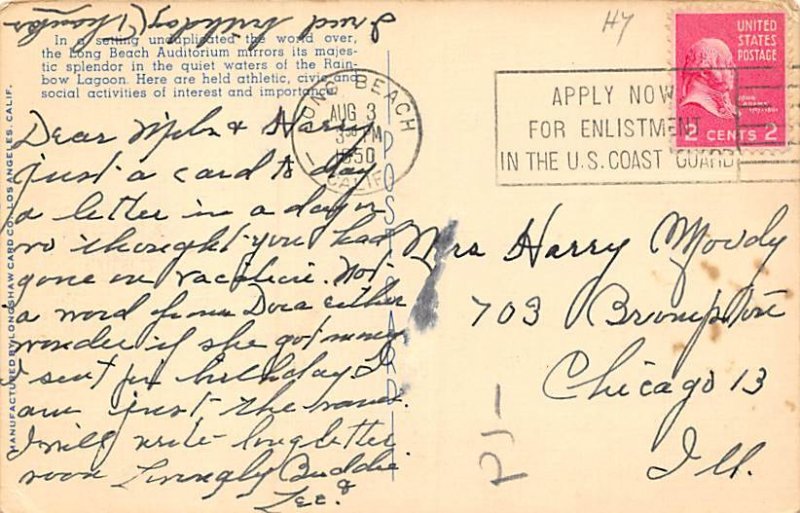 In a setting unduplicated the world over,
the Long Beach Auditorium mirrors its majes-
tic splendor in the quiet waters of the Rain-
bow Lagoon. Here are held athletic, civic and
social activities of interest and importance.
I had birthday Thanks
HY
UNITED
STATES
POSTAGE
2 CENTS 2
LONG BEACH
AUG 3
PM
1950
CALIF
APPLY NOW
FOR ENLISTMENT
IN THE U.S. COAST GUARD
POST CARD
MANUFACTURED BY LONGSHAW CARD CO., LOS ANGELES, CALIF.
Dear & Harry
just a card to day
a letter in a day or
so thought you had
gone on vacation. Not
a word from Dora either
wonder if she got money
I sent for birthday. I
am just the same.
I will write long letter
soon Lovingly Buddie
& Lee.
Mrs Harry Moody
703 Brompton
Chicago 13
Ill.